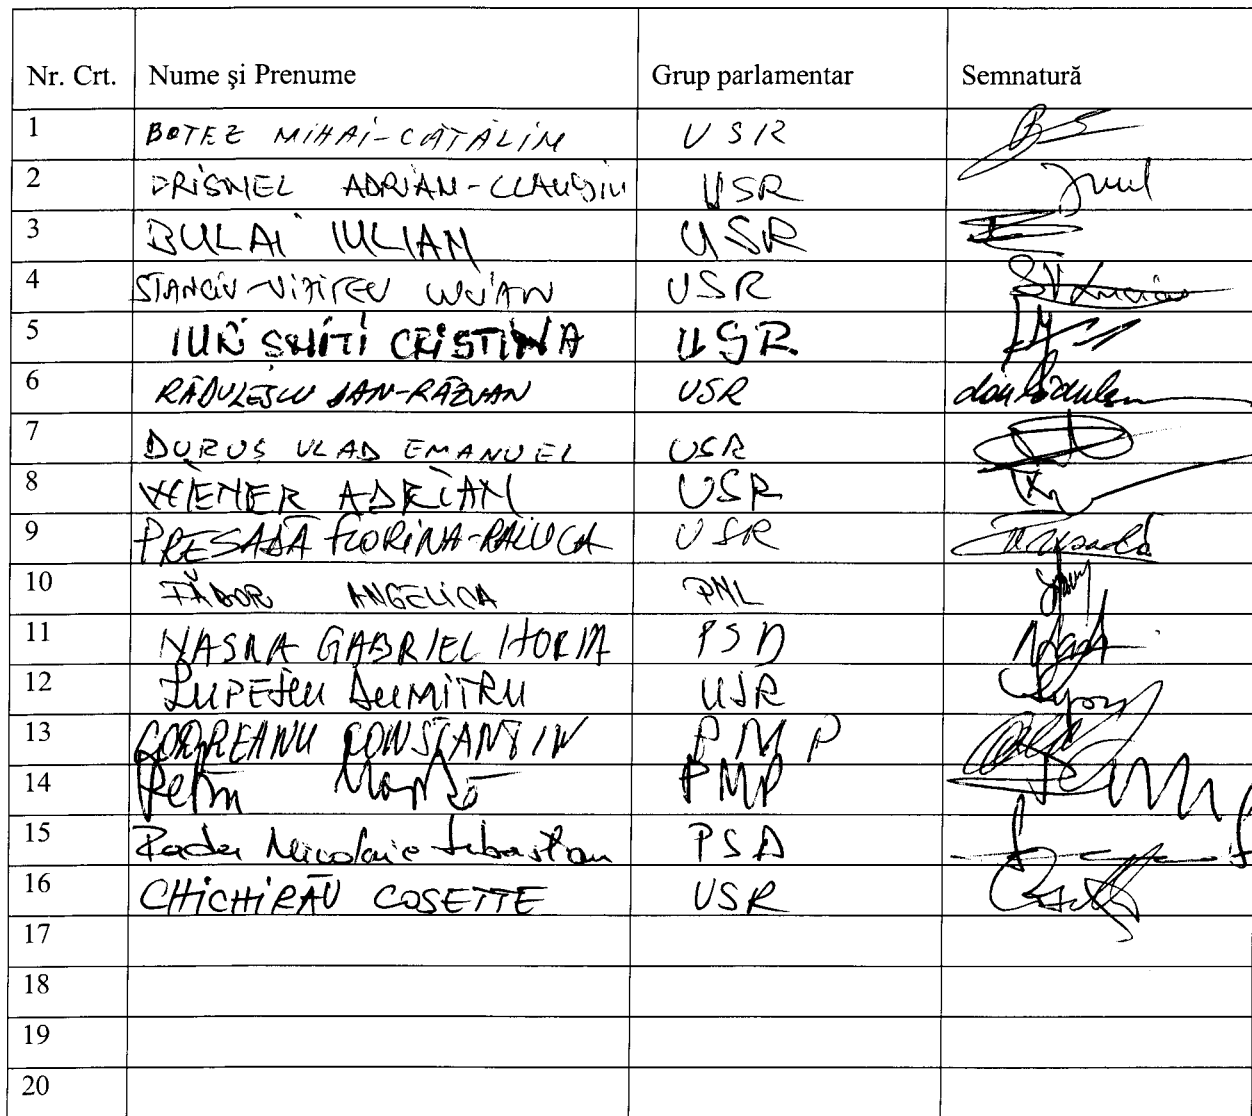 Nr. Crt. Nume și Prenume Grup parlamentar Semnatură
1 BOTEZ MIHAI-CĂTĂLIN USR
2 PRISNEL ADRIAN-CLAUDIU USR
3 BULAI IULIAN USR
4 STANCIU-VIZITEU LUCIAN USR
5 IURIȘNIȚI CRISTINA USR
6 RĂDULESCU DAN-RĂZVAN USR
7 DURUȘ VLAD EMANUEL USR
8 WIENER ADRIAN USR
9 PRESADĂ FLORINA-RALUCA USR
10 FĂDOR ANGELICA PNL
11 NASRA GABRIEL HORIA PSD
12 LUPESCU DUMITRU USR
13 CODREANU CONSTANTIN PMP
14 Petru PMP
15 Radu Nicolaie Sebastian PSD
16 CHICHIRĂU COSETTE USR
17
18
19
20